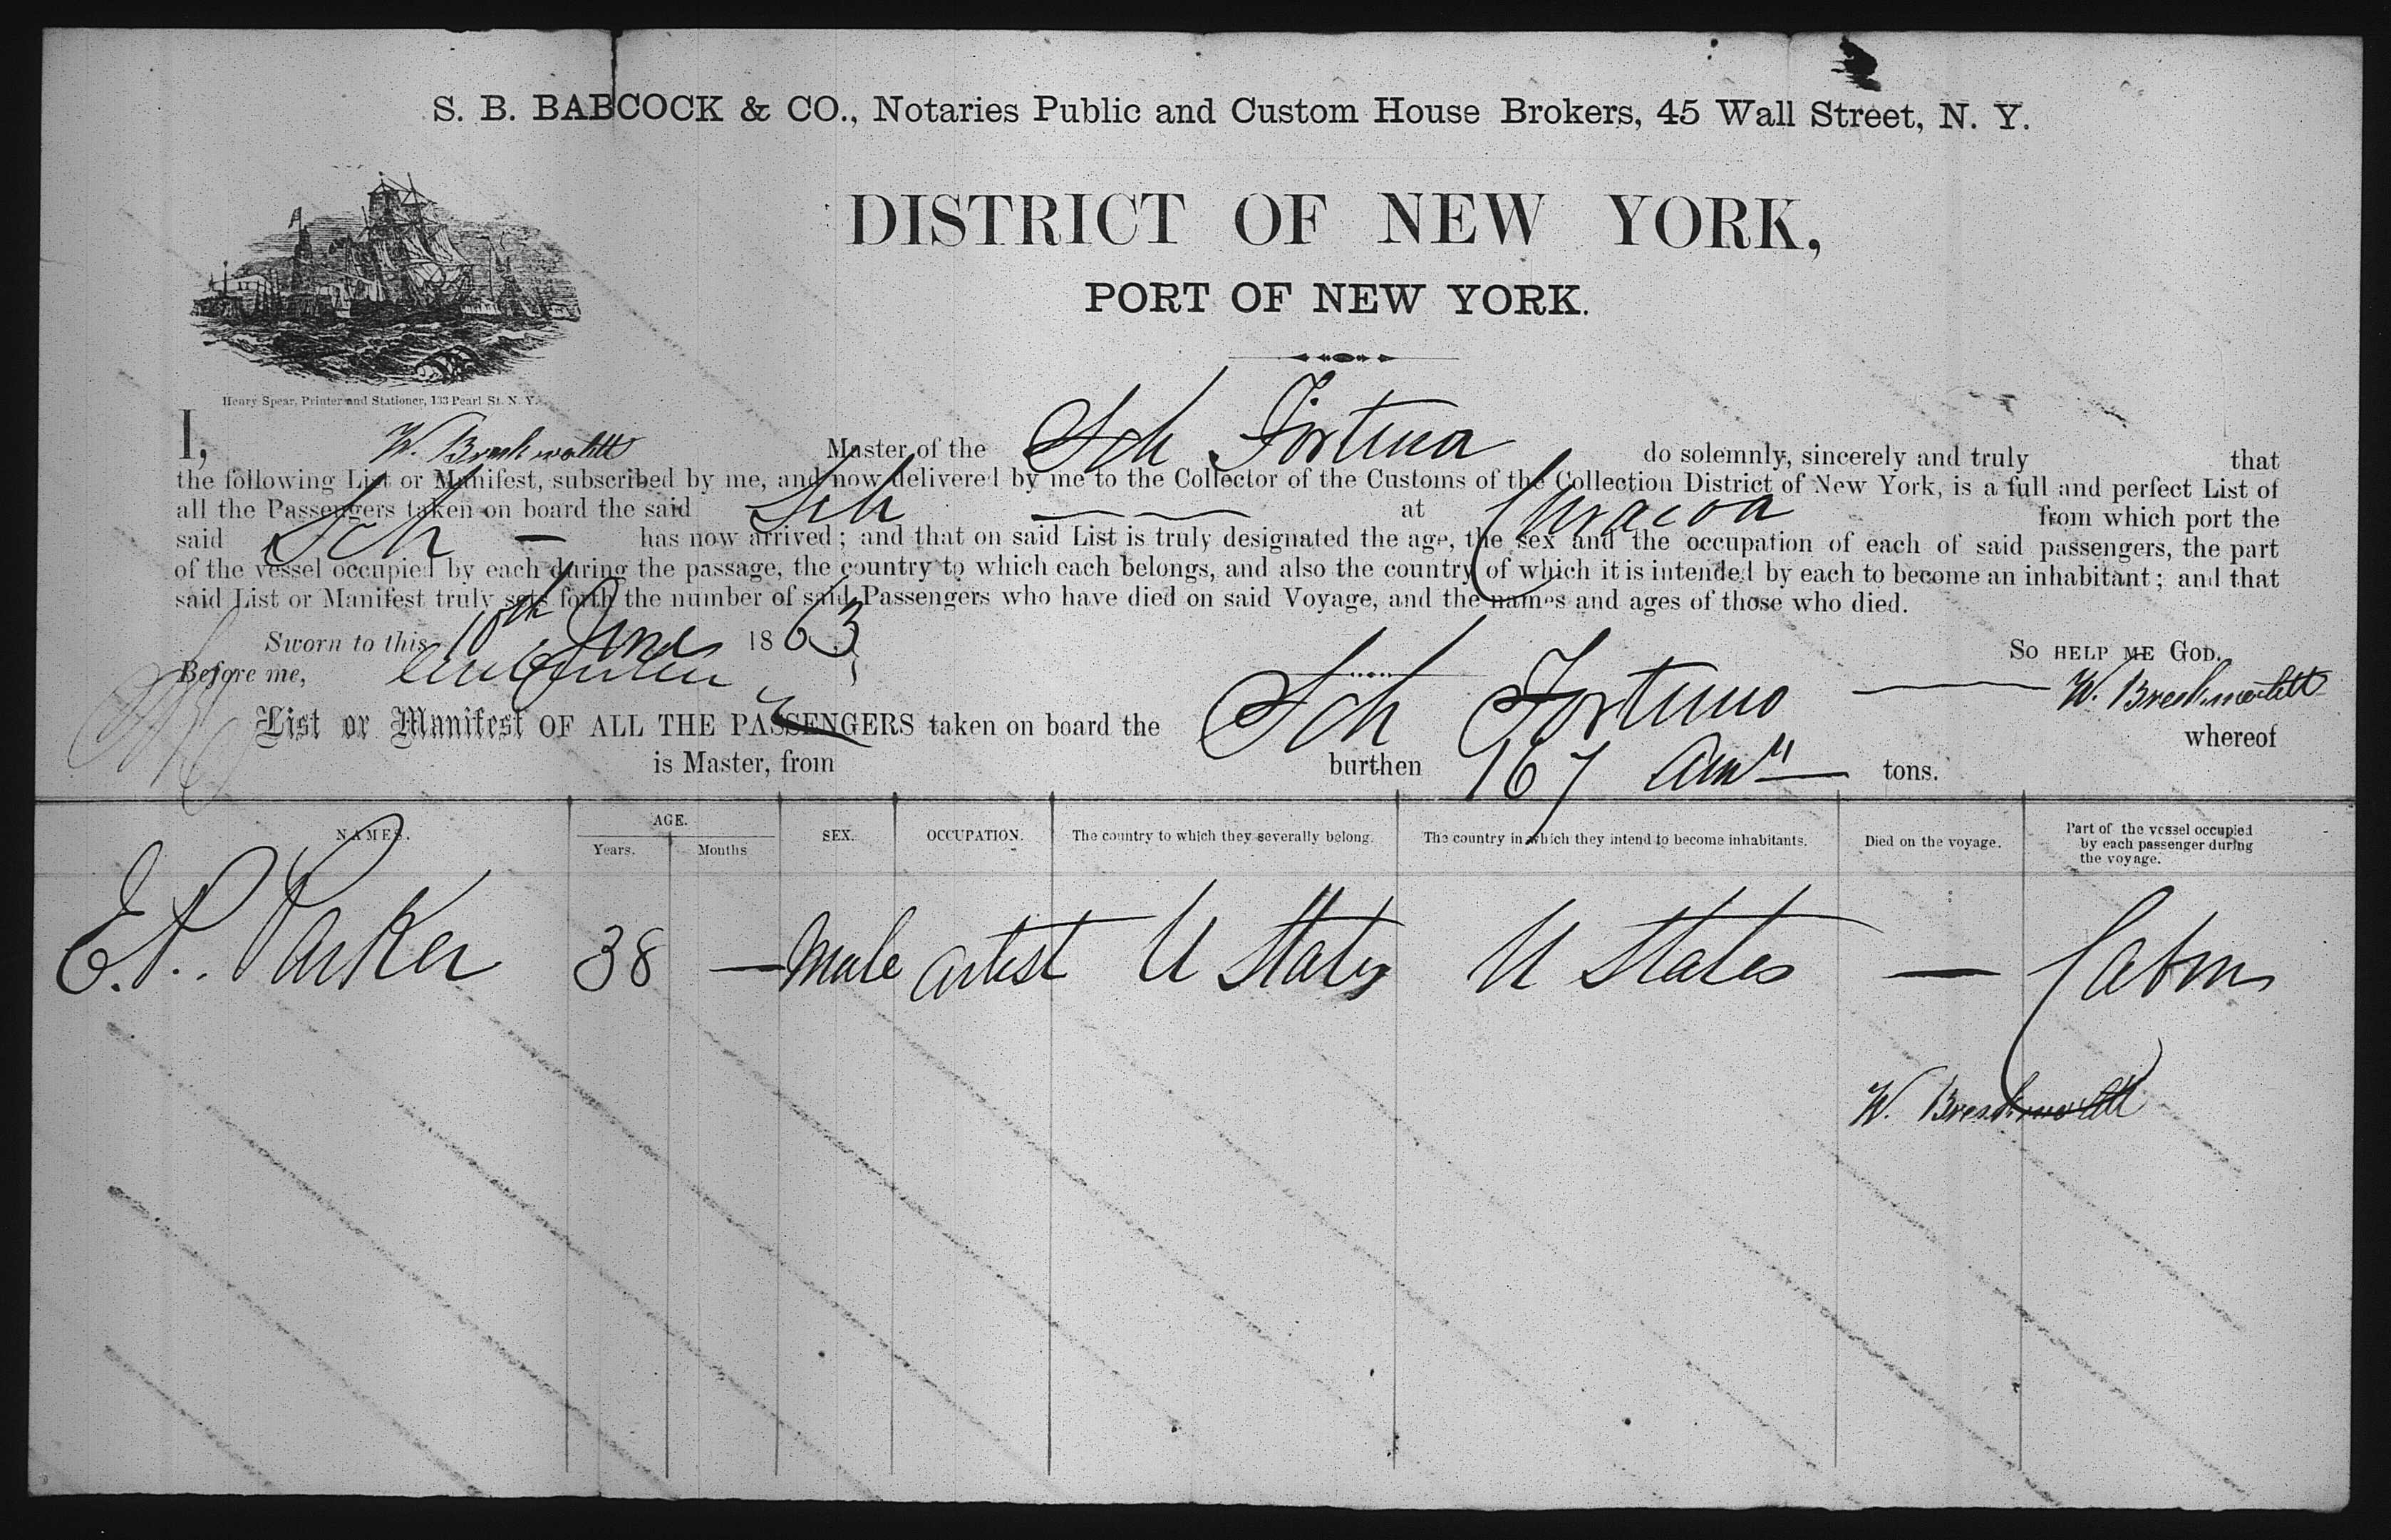 S. B. BABCOCK & CO., Notaries Public and Custom House Brokers, 45 Wall Street, N. Y.
DISTRICT OF NEW YORK,
PORT OF NEW YORK.
Henry Spear, Printer and Stationer, 133 Pearl St. N. Y.
I, W. Master of the Sch Fortuna do solemnly, sincerely and truly that
the following List or Manifest, subscribed by me, and now delivered by me to the Collector of the Customs of the Collection District of New York, is a full and perfect List of
all the Passengers taken on board the said Sch at Curacoa from which port the
said Sch — has now arrived; and that on said List is truly designated the age, the sex and the occupation of each of said passengers, the part
of the vessel occupied by each during the passage, the country to which each belongs, and also the country of which it is intended by each to become an inhabitant; and that
said List or Manifest truly sets forth the number of said Passengers who have died on said Voyage, and the names and ages of those who died.
Sworn to this 10th June 1863
So help me God.
Before me,
W.
List or Manifest OF ALL THE PASSENGERS taken on board the Sch Fortuna whereof
is Master, from burthen 167 tons.
NAMES. AGE. SEX. OCCUPATION. The country to which they severally belong. The country in which they intend to become inhabitants. Died on the voyage. Part of the vessel occupied by each passenger during the voyage.
Years. Months
E. P. Parker 38 — Male artist U States U States — Cabin
W.